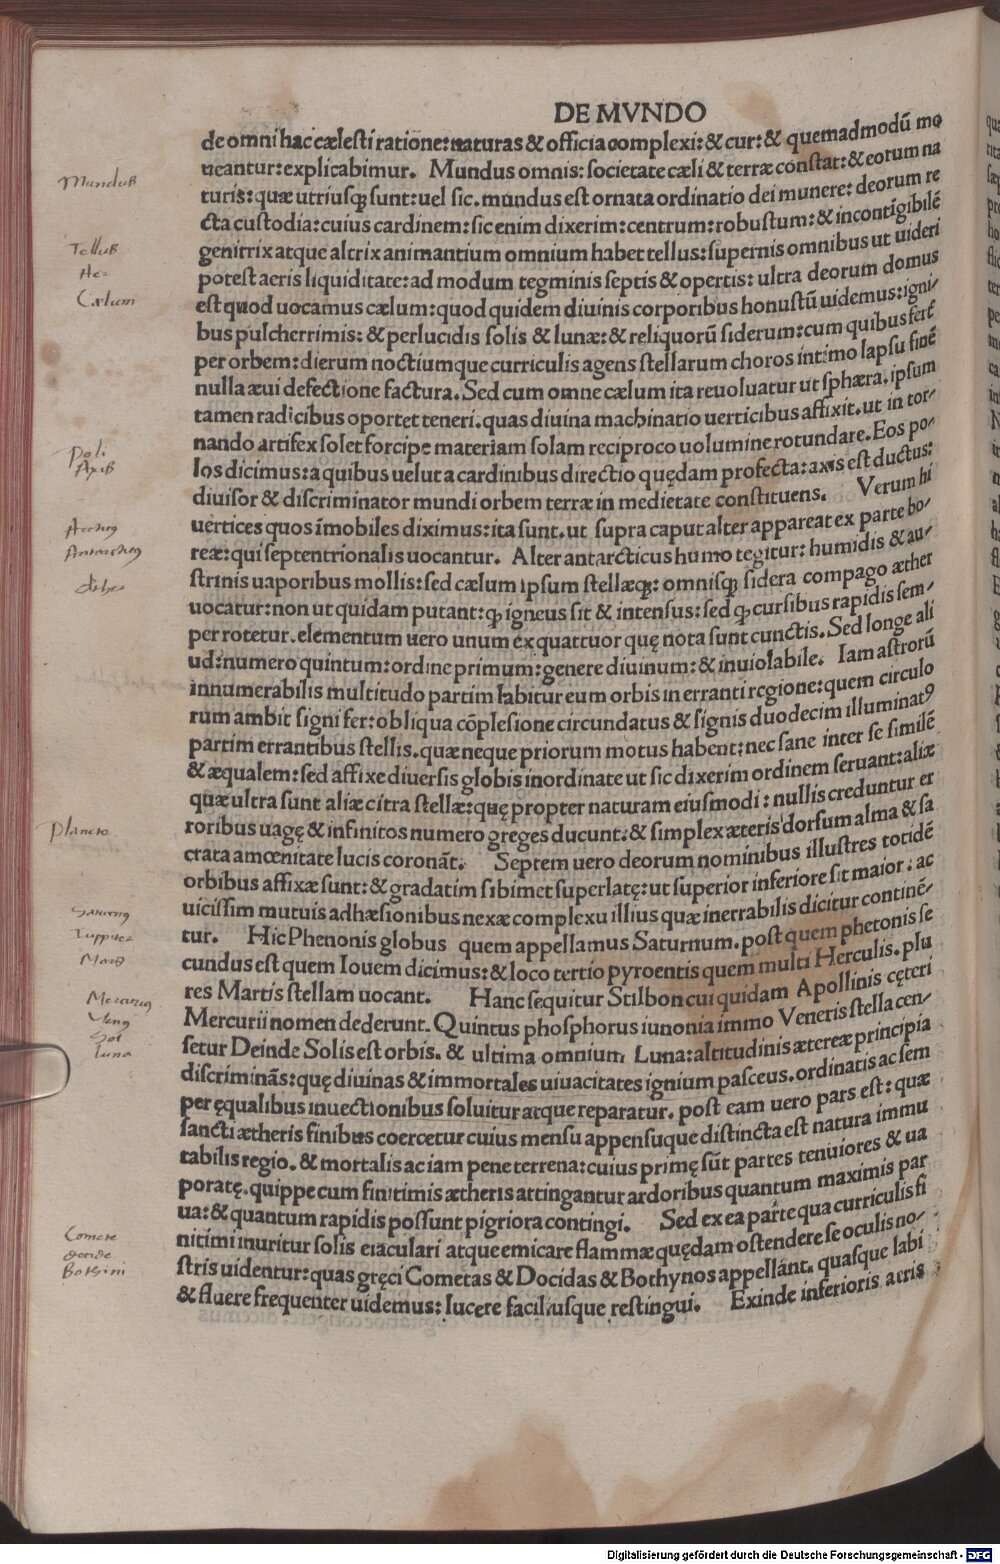 DE MVNDO
de omni hac cælesti ratione: naturas & officia complexi: & cur: & quemadmodū mo
ueantur: explicabimur. Mundus omnis: societate cæli & terræ constat: & eorum na
turis: quæ utriusq; sunt: uel sic. mundus est ornata ordinatio dei munere: deorum re
cta custodia: cuius cardinem: sic enim dixerim: centrum: robustum: & incontigibilē
genitrix atque altrix animantium omnium habet tellus: supernis omnibus ut uideri
potest aeris liquiditate: ad modum tegminis septis & opertis: ultra deorum domus
est quod uocamus cælum: quod quidem diuinis corporibus honustū uidemus: igni-
bus pulcherrimis: & perlucidis solis & lunæ: & reliquorū siderum: cum quibus fert̄
per orbem: dierum noctiumque curriculis agens stellarum choros intimo lapsu finē
nulla æui defectione factura. Sed cum omne cælum ita reuoluatur ut sphæra. ipsum
tamen radicibus oportet teneri. quas diuina machinatio uerticibus affixit. ut in tor-
nando artifex solet forcipe materiam solam reciproco uolumine rotundare. Eos po-
los dicimus: a quibus uelut a cardinibus directio quędam profecta: axis est ductus:
diuisor & discriminator mundi orbem terræ in medietate constituens. Verum hi
uertices quos īmobiles diximus: ita sunt. ut supra caput alter appareat ex parte bo-
reæ: qui septentrionalis uocantur. Alter antarcticus humo tegitur: humidis & au-
strinis uaporibus mollis: sed cælum ipsum stellæq;: omnisq; sidera compago æther
uocatur: non ut quidam putant: ꝙ igneus sit & intensus: sed ꝙ cursibus rapidis sem-
per rotetur. elementum uero unum ex quattuor quę nota sunt cunctis. Sed longe ali
ud: numero quintum: ordine primum: genere diuinum: & inuiolabile. Iam astrorū
innumerabilis multitudo partim labitur eum orbis in erranti regione: quem circulo
rum ambit signifer: obliqua cōplesione circundatus & signis duodecim illuminatꝰ
partim errantibus stellis. quæ neque priorum motus habent: nec sane inter se similē
& æqualem: sed affixe diuersis globis inordinate ut sic dixerim ordinem seruant: aliæ
quæ ultra sunt aliæ citra stellæ: quę propter naturam eiusmodi: nullis creduntur er
roribus uagę & infinitos numero greges ducunt: & simplex æteris dorsum alma & sa
crata amœnitate lucis coronāt. Septem uero deorum nominibus illustres totidē
orbibus affixæ sunt: & gradatim sibimet superlatę: ut superior inferiore sit maior: ac
uicissim mutuis adhæsionibus nexæ complexu illius quæ inerrabilis dicitur continē-
tur. Hic Phenonis globus quem appellamus Saturnum. post quem phetonis se
cundus est quem Iouem dicimus: & loco tertio pyroentis quem multi Herculis. plu
res Martis stellam uocant. Hanc sequitur Stilbon cui quidam Apollinis cęteri
Mercurii nomen dederunt. Quintus phosphorus iunonia immo Veneris stella cen-
setur Deinde Solis est orbis. & ultima omnium Luna: altitudinis æthereæ principia
discriminās: quę diuinas & immortales uiuacitates ignium pasceus. ordinatis ac sem
per ęqualibus inuectionibus soluitur atque reparatur. post eam uero pars est: quæ
sancti ætheris finibus coercetur cuius mensu appensuque distincta est natura immu
tabilis regio. & mortalis ac iam pene terrena: cuius primę sūt partes tenuiores & ua
poratę. quippe cum finitimis ætheris attingantur ardoribus quantum maximis par
ua: & quantum rapidis possunt pigriora contingi. Sed ex ea parte qua curriculis fi
nitimi inuritur solis eiaculari atque emicare flammæ quędam ostendere se oculis no-
stris uidentur: quas gręci Cometas & Docidas & Bothynos appellānt. quasque labi
& fluere frequenter uidemus: lucere faciliusque restingui. Exinde inferioris aeris
Mundus
Tellus
Aer
Cælum
Poli
Axis
Antarcticꝰ
Planete
Saturnꝰ
Iuppiter
Mars
Mercuriꝰ
Venꝰ
Sol
Luna
Comete
Docide
Bothini
Digitalisierung gefördert durch die Deutsche Forschungsgemeinschaft - DFG